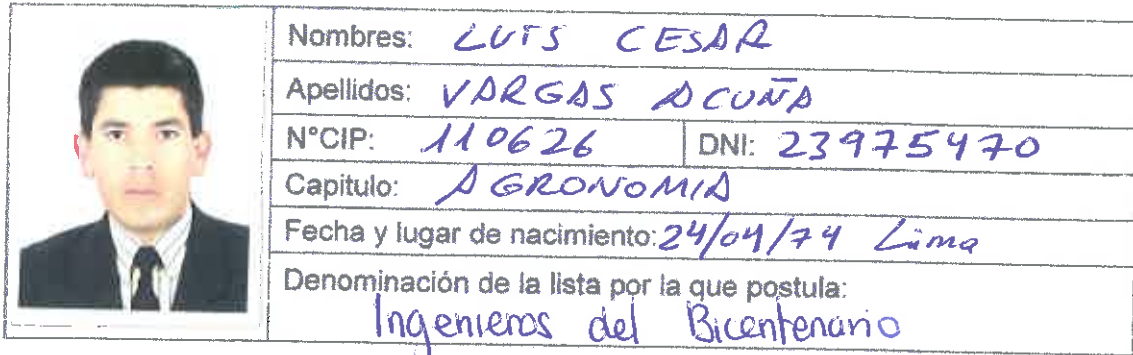 Nombres: LUIS CESAR
Apellidos: VARGAS ACUÑA
N°CIP: 110626 DNI: 23975470
Capitulo: AGRONOMIA
Fecha y lugar de nacimiento: 24/04/74 Lima
Denominación de la lista por la que postula:
Ingenieros del Bicentenario